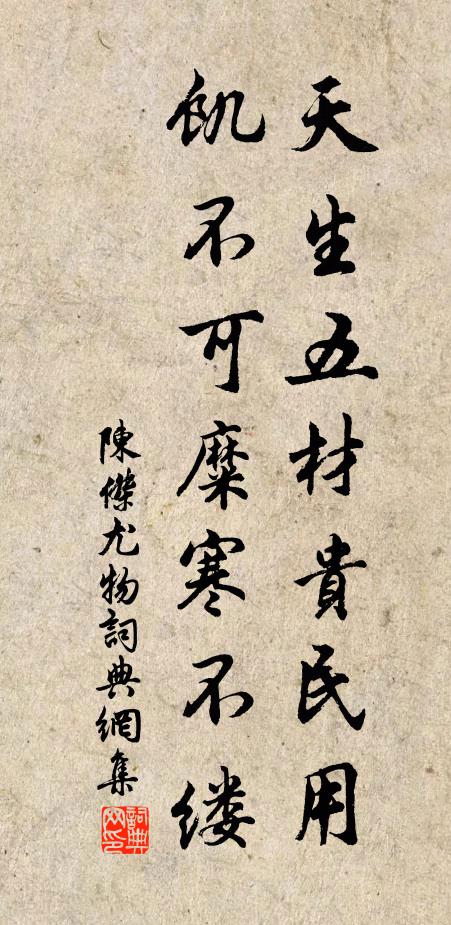 天生五材貴民用
飢不可糜寒不缕
陳傑尤物詞典網集
詞典网印